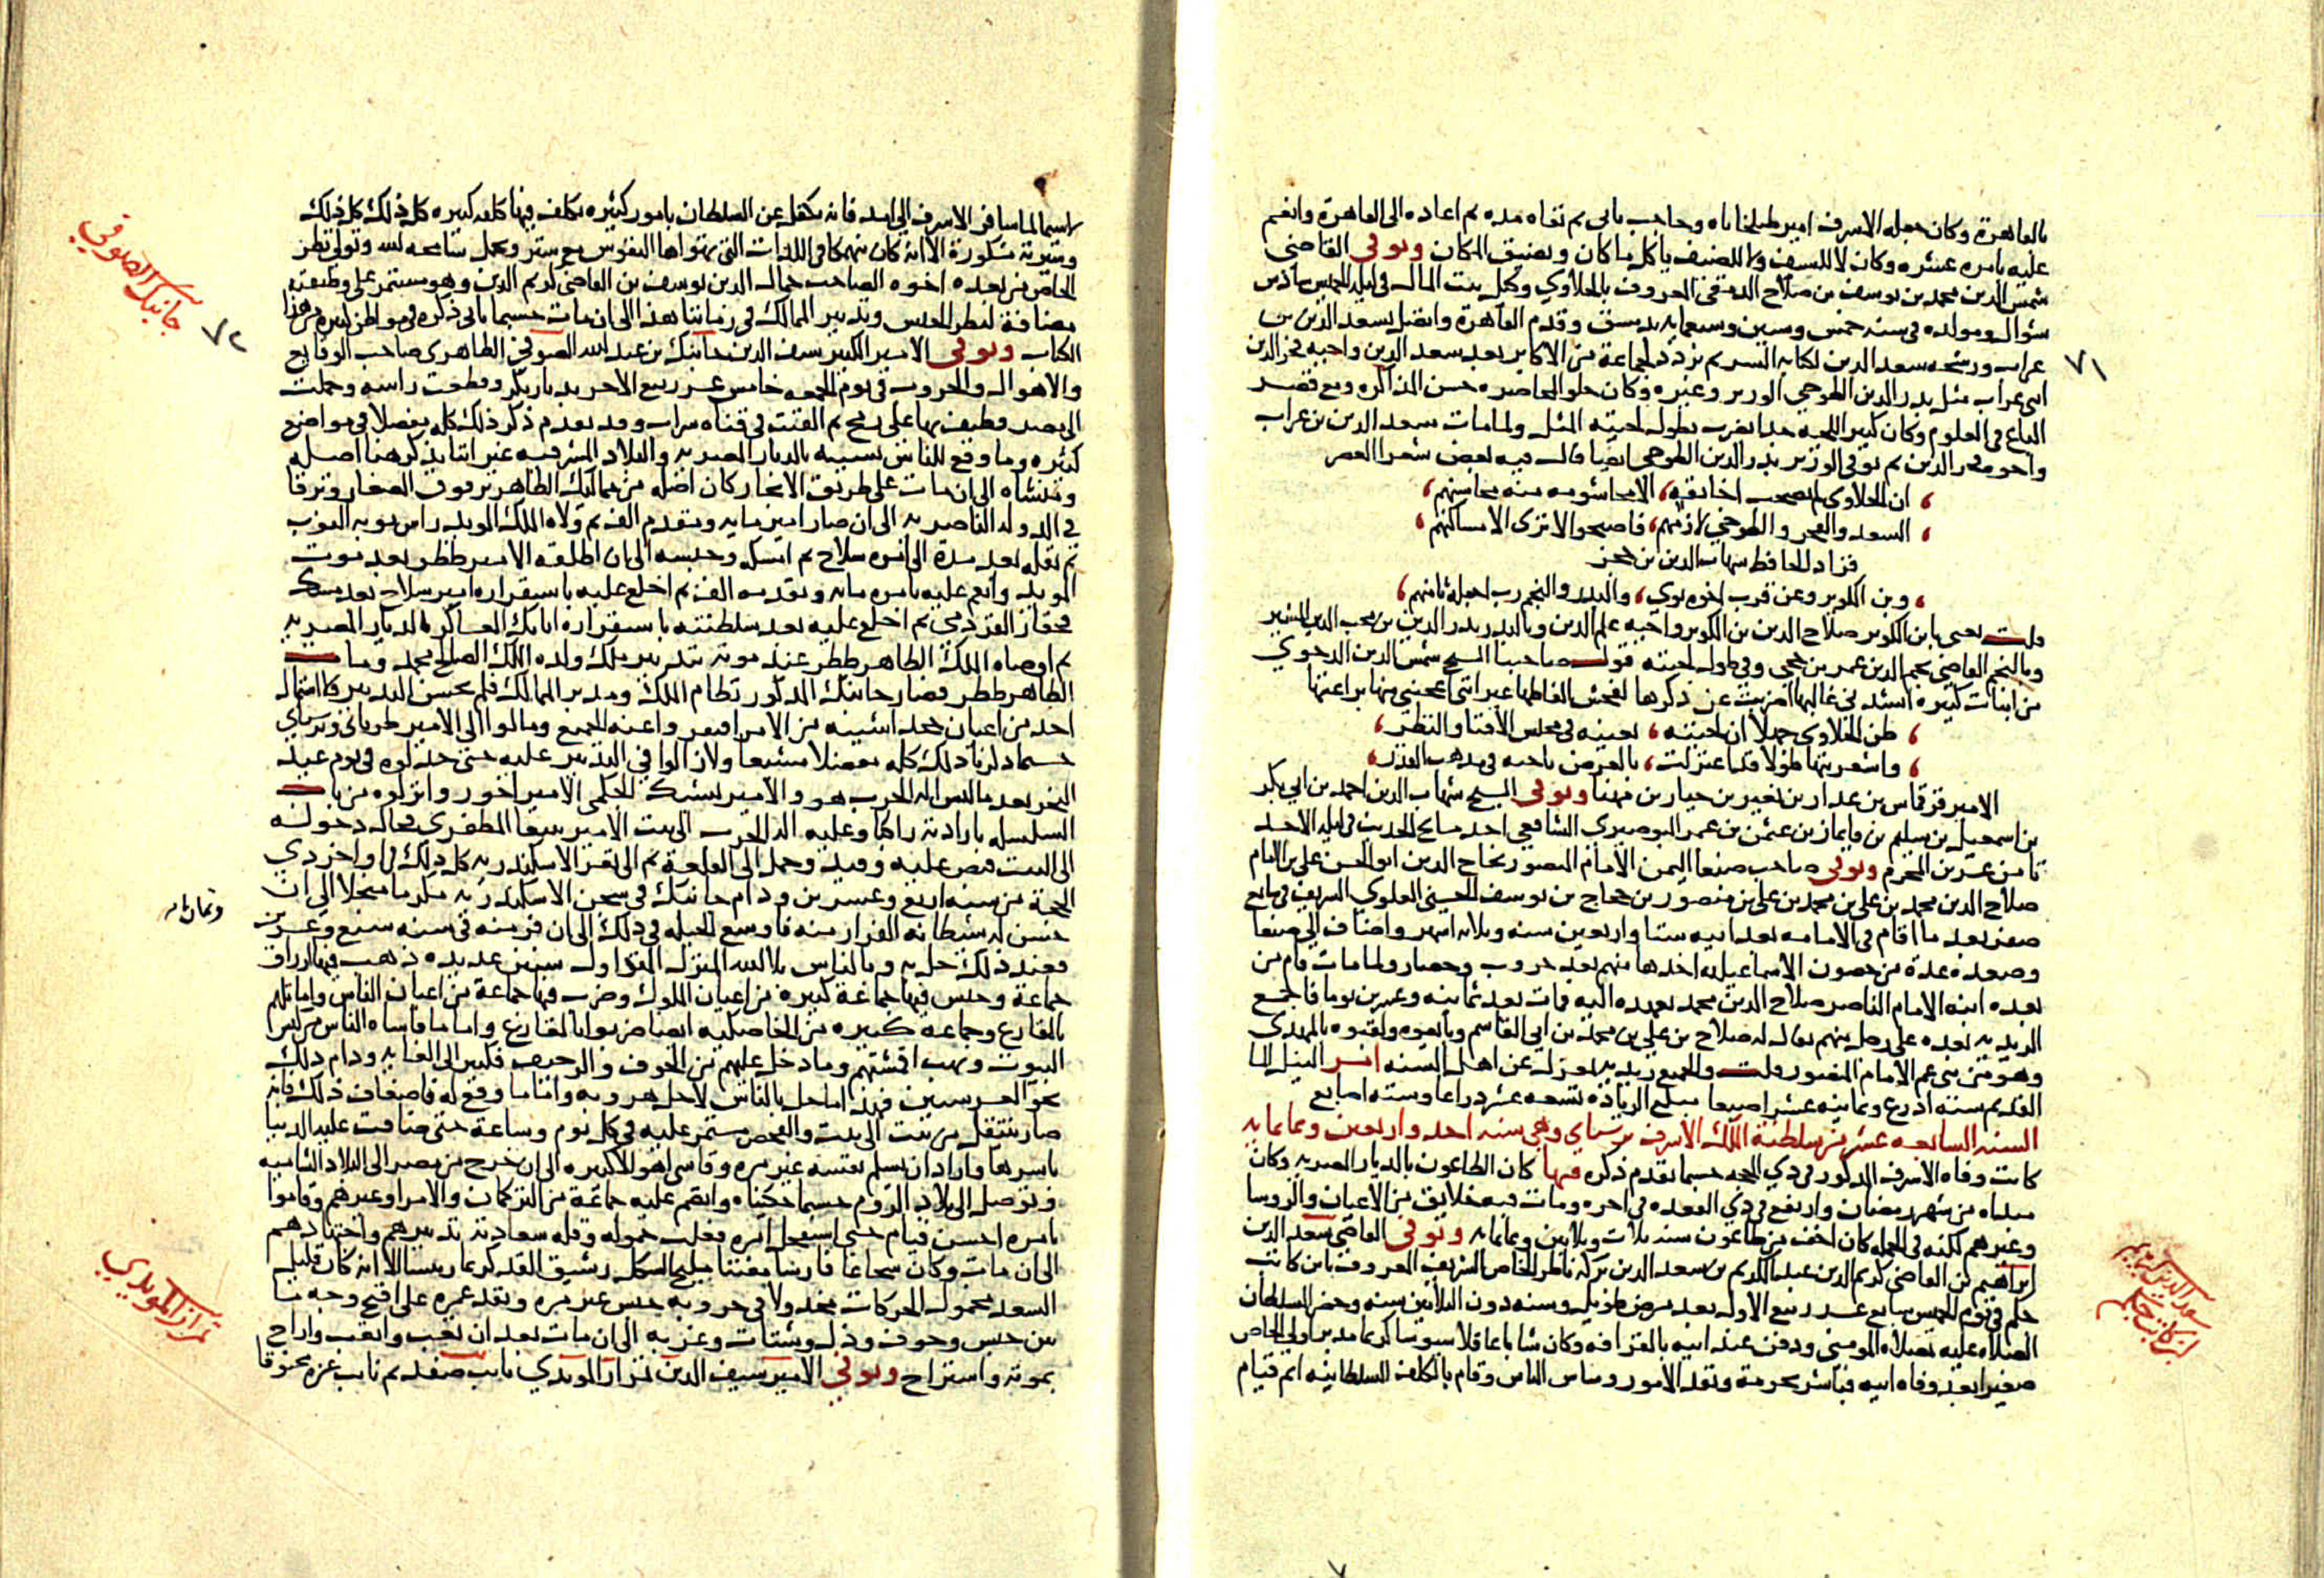 بالقاهرة وكان جعله الاشرف امير طبلخاناه وحاجب ثاني ثم نفاه مده ثم اعاده الى القاهرة وانعم
عليه بامره عشره وكان لا للسيف ولا للضيف ياكل ما كان ويضيق المكان وتوفي القاضي
شمس الدين محمد بن يوسف بن صلاح الدمشقي المعروف بالحلاوي وكيل بيت المال في ليله الخميس سادس
شوال ومولده في سنه خمس وستين وسبعمايه بدمشق وقدم القاهرة واتصل بسعد الدين بن
غراب ورشحه سعد الدين لكتابه السر ثم تردد لجماعة من الاكابر بعد سعد الدين واخيه فخر الدين
٧١
ابني غراب مثل بدر الدين الطوخي الوزير وغيره وكان حلو المحاضره حسن المذاكره ومع قصر
الباع في العلوم وكان كبير اللحيه جدا يضرب بطول لحيته المثل ولما مات سعد الدين بن غراب
واخوه فخر الدين ثم توفي الوزير بدر الدين الطوخي ايضا قال فيه بعض شعرا العصر
ان الحلاوي لم يصحب اخا ثقه الا محا شومه منه محاسنهم
السعد والفخر والطوخي لازمهم فاصبحوا لا ترى الا مساكنهم
فزاد الحافظ شهاب الدين بن حجر
وبن الكويز وعن قرب اخوه ثوي والبدر والنجم رب اجعله ثامنهم
قلت يعني بابن الكويز صلاح الدين بن الكويز واخيه علم الدين وبالبدر بدر الدين بن محب الدين المشير
وبالنجم القاضي نجم الدين عمر بن حجي وفي طول لحيته قول صاحبنا الشيخ شمس الدين الدجوي
من ابيات كثيره انشدني غالبها اضربت عن ذكرها لفحش الفاظها غير انني اعجبني منها براعتها
ظن الحلاوي جهلا ان لحيته تغنيه في مجلس الافتا والنظر
واشعريتها طولا قد اعتزلت بالعرض باحثه في مذهب القدر
الامير قرقماس بن عذرا بن نعير بن حيار بن مهنا وتوفي الشيخ شهاب الدين احمد بن ابي بكر
بن اسمعيل بن سليم بن قايماز بن عثمن بن عمر البوصيري الشافعي احد مشايخ الحديث في ليله الاحد
ثامن عشرين المحرم وتوفي صاحب صنعا اليمن الامام المنصور نجاح الدين ابو الحسن علي بن الامام
صلاح الدين محمد بن علي بن محمد بن علي بن منصور بن حجاج بن يوسف الحسني العلوي الشريف في سابع
صفر بعد ما اقام في الامامه بعد ابيه ستا واربعين سنه وثلاثه اشهر واضاف الى صنعا
وصعده عدة من حصون الاسماعيليه اخذها منهم بعد حروب وحصار ولما مات قام من
بعده ابنه الامام الناصر صلاح الدين محمد بعهده اليه فمات بعد ثمانيه وعشرين يوما فاجمع
الزيديه بعده على رجل منهم يقال له صلاح بن علي بن محمد بن ابي القاسم وبايعوه ولقبوه بالمهدي
وهو من بني عم الامام المنصور قلت والجميع زيديه بمعزل عن اهل السنه امر النيل الما
القديم سته اذرع وثمانيه عشر اصبعا مبلغ الزياده تسعه عشر ذراعا وسته اصابع
السنه السابعه عشر من سلطنة الملك الاشرف برسباي وهي سنه احد واربعين وثمانمايه
كانت وفاه الاشرف المذكور في ذي الحجه حسبما تقدم ذكره فيها كان الطاعون بالديار المصريه وكان
مبداه من شهر رمضان وارتفع في ذي القعده في اخره ومات فيه خلايق من الاعيان والروسا
وغيرهم لكنه في الجمله كان اخف من طاعون سنه ثلاث وثلاثين وثمانمايه وتوفي القاضي سعد الدين
ابراهيم بن القاضي كريم الدين عبد الكريم بن سعد الدين بركه ناظر الخاص الشريف المعروف بابن كاتب
جكم في يوم الخميس سابع عشر ربيع الاول بعد مرض طويل وسنه دون الثلاثين سنه وحضر السلطان
الصلاه عليه بمصلاه المومني ودفن عند ابيه بالقرافه وكان شابا عاقلا سيوسا كريما مدبرا ولي الخاص
صغيرا بعد وفاه ابيه فباشر بحرمة ونفذ الامور وساس الناس وقام بالكلف السلطانيه اتم قيام
سعد الدين ابراهيم
ابن كاتب جكم
لاسيما لما سافر الاشرف الى امد فانه تكفل عن السلطان بامور كثيره تكلف فيها كلفه كبيره كل ذلك
وسيرته مشكورة الا انه كان منهمكا في اللذات التي تهواها النفوس مع ستر وتجمل سامحه الله وتولى نظر
الخاص من بعده اخوه الصاحب جمال الدين يوسف بن القاضي كريم الدين وهو مستمر على وظيفته
جانبك الصوفي
مضافة لنظر الجيش وتدبير الممالك في زماننا هذا الى ان مات حسبما ياتي ذكره في مواطن كثيره من هذا
٧٢
الكتاب وتوفي الامير الكبير سيف الدين جانبك بن عبد الله الصوفي الظاهري صاحب الوقايع
والاهوال والحروب في يوم الجمعه خامس عشر ربيع الاخر بديار بكر وقطعت راسه وحملت
الى مصر فطيف بها على رمح ثم القيت في قناه سراب وقد تقدم ذكر ذلك كله مفصلا في مواضع
كثيره وما وقع للناس بسببه بالديار المصريه والبلاد المشرقيه غير اننا نذكر هنا اصله
ومنشاه الى ان مات على طريق الايجاز كان اصله من مماليك الظاهر برقوق الصغار وترقا
في الدوله الناصريه الى ان صار امير مايه ومقدم الف ثم ولاه الملك المويد راس نوبه النوب
ثم نقله بعد مدة الى امره سلاح ثم امسكه وحبسه الى ان اطلقه الامير ططر بعد موت
المويد وانعم عليه بامره مايه وتقدمه الف ثم اخلع عليه باستقراره امير سلاح بعد مسك
قجقار القردمي ثم اخلع عليه بعد سلطنته باستقراره اتابك العساكر بالديار المصريه
ثم اوصاه الملك الظاهر ططر عند موته بتدبير ملك ولده الملك الصالح محمد ومات
الظاهر ططر فصار جانبك المذكور نظام الملك ومدبر الممالك فلم يحسن التدبير ولا استمال
احد من اعيان خجداشيته من الامرا فنفر واعنه الجميع ومالوا الى الامير طرباي وبرسباي
حسبما ذكرنا ذلك كله مفصلا مشبعا ولا زالوا في التدبير عليه حتى خذلوه في يوم عيد
النحر بعد ما لبس اله الحرب هو والامير يشبك الجكمي الامير اخور وانزلوه من باب
السلسله بارادته راكبا وعليه اله الحرب الى بيت الامير بيبغا المظفري فحال دخوله
الى البيت قبض عليه وقيد وحمل الى القلعة ثم الى ثغر الاسكندريه كل ذلك في اواخر ذي
الحجة من سنه اربع وعشرين ودام جانبك في سجن الاسكندريه مكرما مبجلا الى ان
وثمانمايه
حسن له شيطانه الفرار منه فاوسع الحيله في ذلك الى ان فر منه في سنه سبع وعشرين
فعند ذلك حل به وبالناس بلا الله المنزل المتداول سنين عديده ذهب فيها ارزاق
جماعة وحبس فيها جماعة كثيرة من اعيان الملوك وضرب فيها جماعة من اعيان الناس واماثلهم
بالمقارع وجماعه كبيره من الخاصكيه ايضا ضربوا بالمقارع واما ما قاساه الناس من كبس
البيوت ونهب اقمشتهم وما دخل عليهم من الخوف والرجيف فكثير الى الغايه ودام ذلك
نحو العشر سنين فهذا ما حل بالناس لاجل هروبه واما ما وقع له فاضعاف ذلك فانه
صار ينتقل من بيت الى بيت والفحص مستمر عليه في كل يوم وساعة حتى ضاقت عليه الدنيا
باسرها واراد ان يسلم نفسه غير مره وقاسى اهوالا كبيره الى ان خرج من مصر الى البلاد الشاميه
وتوصل الى بلاد الروم حسبما حكيناه وانضم عليه جماعة من التركمان والامرا وغيرهم وقاموا
بامره احسن قيام حتى استفحل امره فغلب خموله وقله سعادته تدبيرهم واجتهادهم
الى ان مات وكان شجاعا فارسا مفننا مليح الشكل رشيق القد كريما رييسا الا انه كان قليل
السعد مخمول الحركات مخذولا في حروبه حبس غير مره ونفد عمره على اقبح وجه ما
تمراز المويدي
بين حبس وخوف وذل وشتات وغربه الى ان مات بعد ان تعب واتعب واراح
بموته واستراح وتوفي الامير سيف الدين تمراز المويدي نايب صفد ثم نايب غزه مخنوقا